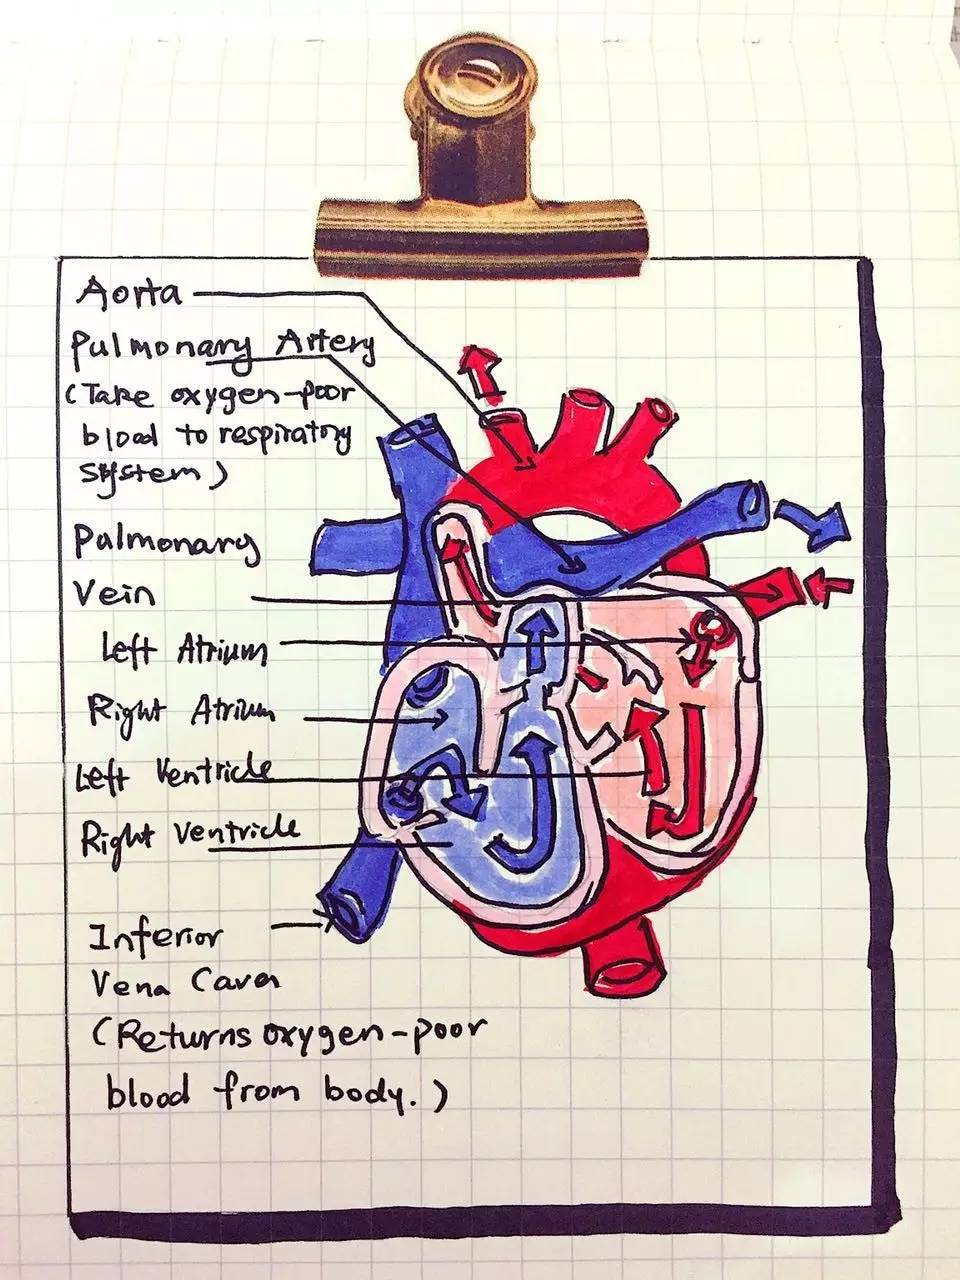 Aorta
Pulmonary Artery
(Take oxygen-poor
blood to respiratory
system)
Pulmonary
Vein
Left Atrium
Right Atrium
Left Ventricle
Right Ventricle
Inferior
Vena Cava
(Returns oxygen-poor
blood from body.)